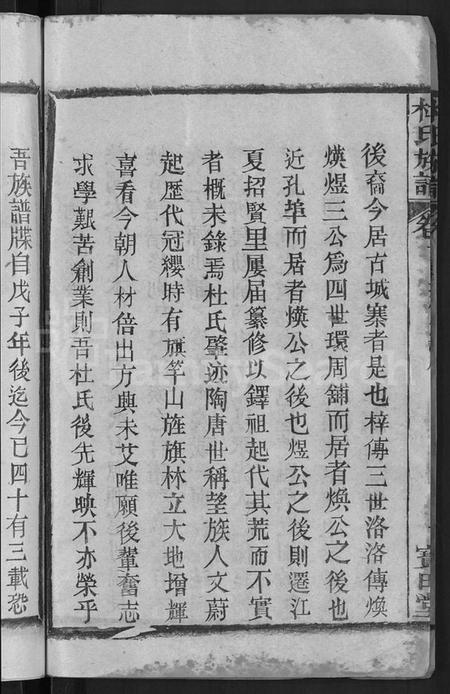 杜氏族譜
寶田堂
後裔今居古城寨者是也梓傳三世洛洛傳煥
煐煜三公爲四世環周舖而居者煥公之後也
近孔埠而居者煐公之後也煜公之後則遷江
夏招賢里屢届纂修以鐸祖起代其荒而不實
者概未錄焉杜氏肇迹陶唐世稱望族人文蔚
起歷代冠纓時有旗竿山旌旗林立大地增輝
喜看今朝人材倍出方興未艾唯願後輩奮志
求學艱苦創業則吾杜氏後先輝映不亦榮乎
吾族譜牒自戊子年後迄今已四十有三載恐